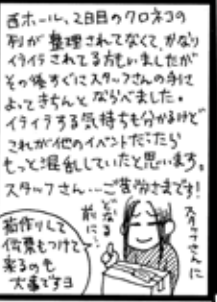 西ホール、2日目のクロネコの
列が整理されてなくて、かなり
イライラされてる方もいましたが
その後すぐにスタッフさんの手に
よってきちんとならべました。
イライラする気持ちも分かるけど
これが他のイベントだったら
もっと混乱していたと思います。
スタッフさん…ご苦労さまです!
スタッフさんに
どなる
前に…
箱作りして
伝票もつけて
来るのも
大事ですヨ